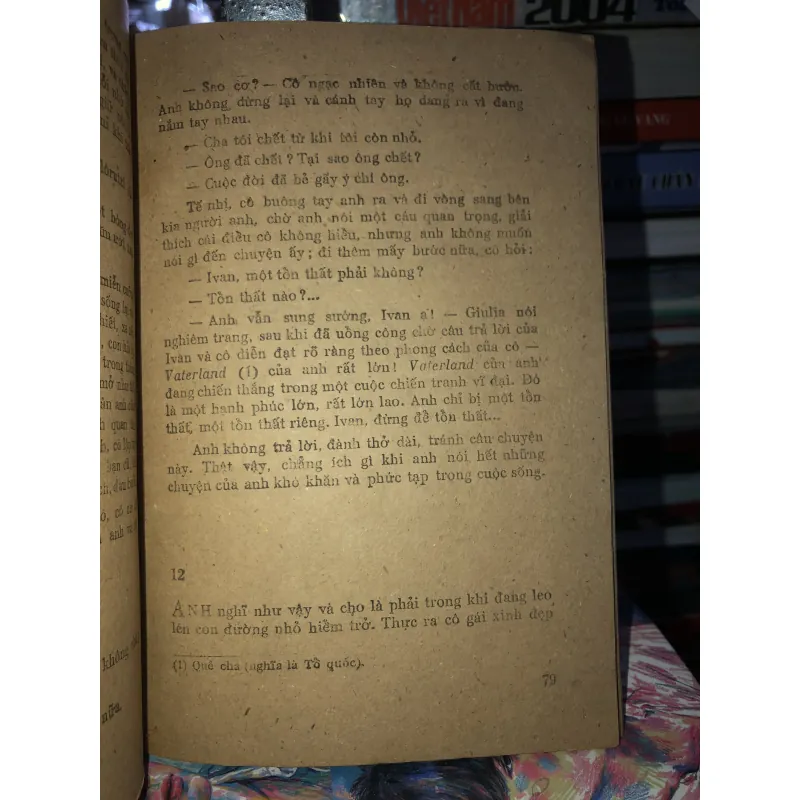 Việt Nam 2004
— Sao cơ? — Cô ngạc nhiên và không cất bước.
Anh không dừng lại và cánh tay họ dang ra vì đang
nắm tay nhau.
— Cha tôi chết từ khi tôi còn nhỏ.
— Ông đã chết? Tại sao ông chết?
— Cuộc đời đã bẻ gãy ý chí ông.
Tế nhị, cô buông tay anh ra và đi vòng sang bên
kia người anh, chờ anh nói một câu quan trọng, giải
thích cái điều cô không hiểu, nhưng anh không muốn
nói gì đến chuyện ấy; đi thêm mấy bước nữa, cô hỏi:
— Ivan, một tổn thất phải không?
— Tổn thất nào?...
— Anh vẫn sung sướng, Ivan ạ! — Giulia nói
nghiêm trang, sau khi đã uổng công chờ câu trả lời của
Ivan và cô diễn đạt rõ ràng theo phong cách của cô —
Vaterland (1) của anh rất lớn! Vaterland của anh
đang chiến thắng trong một cuộc chiến tranh vĩ đại. Đó
là một hạnh phúc lớn, rất lớn lao. Anh chỉ bị một tổn
thất, một tổn thất riêng. Ivan, đừng để tổn thất...
Anh không trả lời, đành thở dài, tránh câu chuyện
này. Thật vậy, chẳng ích gì khi anh nói hết những
chuyện của anh khó khăn và phức tạp trong cuộc sống.
12
ANH nghĩ như vậy và cho là phải trong khi đang leo
lên con đường nhỏ hiểm trở. Thực ra cô gái xinh đẹp
(1) Quê cha (nghĩa là Tổ quốc).
79